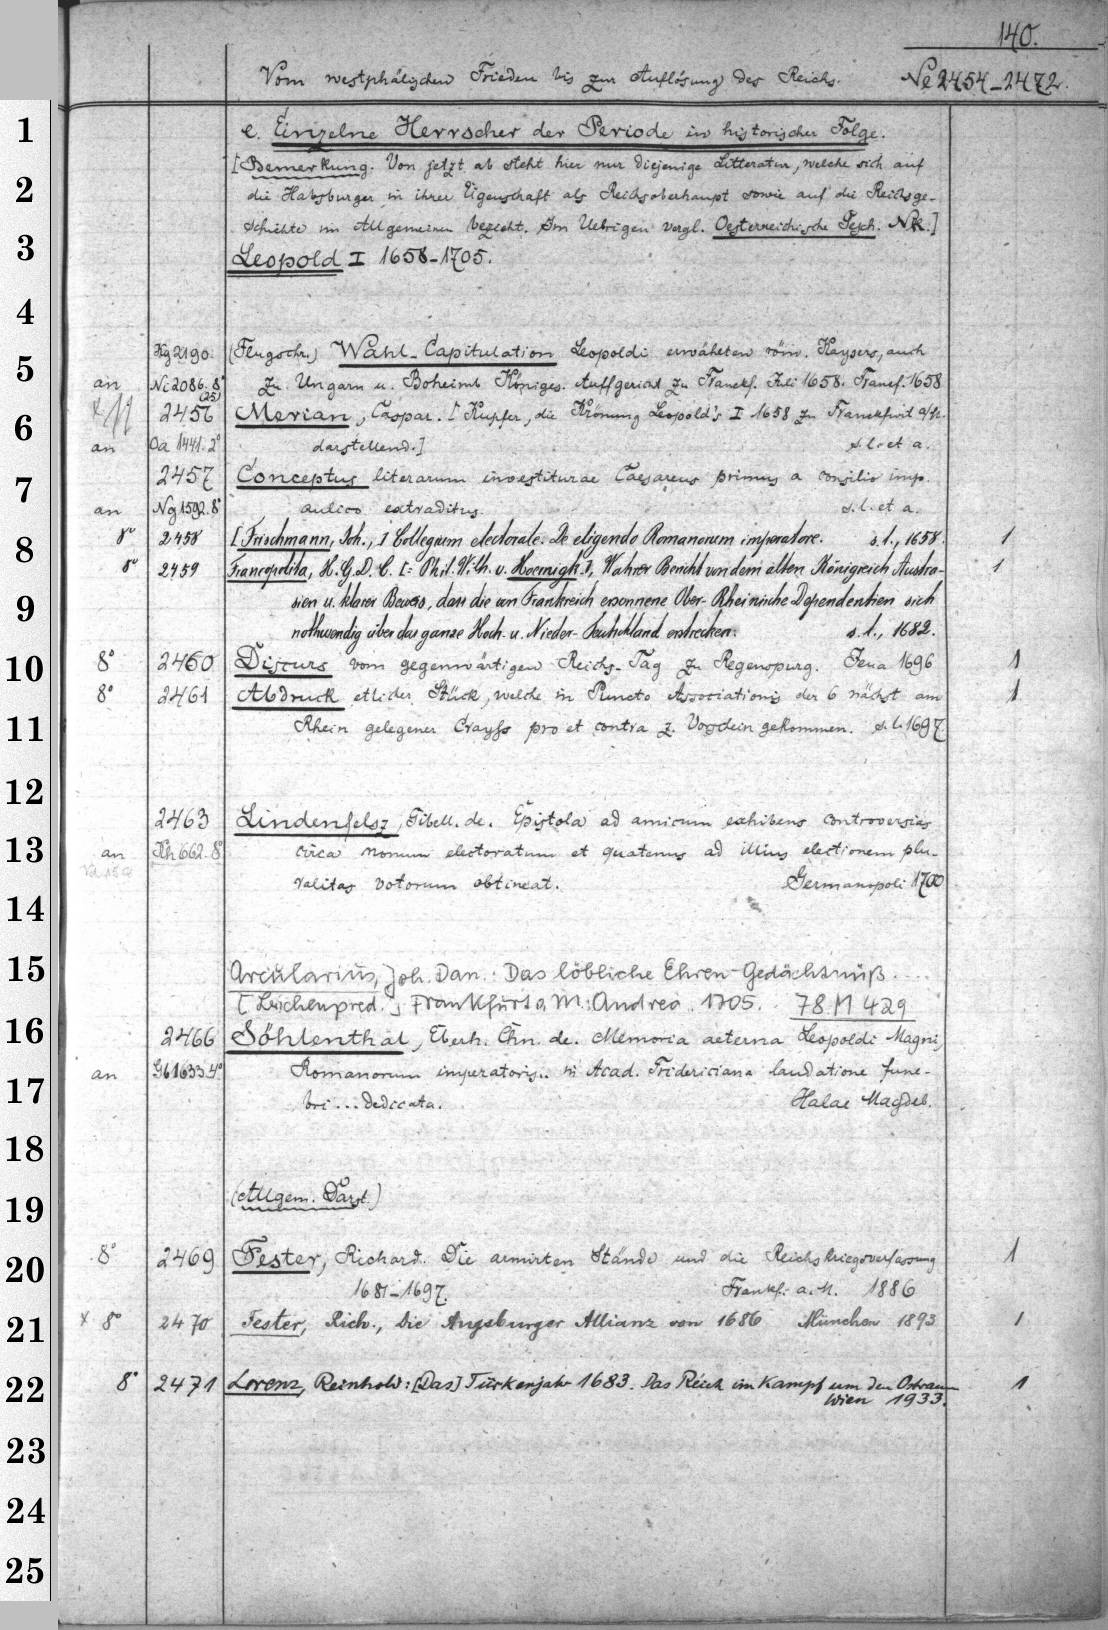 140.
Vom westphälischen Frieden bis zur Auflösung des Reichs. Ne 2454-2472.
1 e. Einzelne Herrscher der Periode in historischer Folge.
[Bemerkung. Von jetzt ab steht hier nur diejenige Litteratur, welche sich auf
2 die Habsburger in ihrer Eigenschaft als Reichsoberhaupt sowie auf die Reichsge-
schichte im Allgemeinen bezieht. Im Uebrigen vergl. Oesterreichische Gesch. Nk.]
3 Leopold I 1658-1705.
4
Kg 2190. (Flugschr.) Wahl-Capitulation Leopoldi erwählten röm. Kaysers, auch
5 an Ni 2086. 8° (25) zu Ungarn u. Boheimb Königes. Auffgericht zu Franckf. Juli 1658. Francf. 1658
2456 Merian, Caspar. [Kupfer, die Krönung Leopold's I 1658 zu Franckfurt a/M.
6 an Oa 1441. 2° darstellend.] s. l. et a.
2457 Conceptus literarum investiturae Caesareus primus a consilio imp.
7 an Ng 1592. 8° aulico extraditus. s. l. et a.
8 8° 2458 [Frischmann, Joh.,] Collegium electorale. De eligendo Romanorum imperatore. s. l., 1658. 1
8° 2459 Francopolita, H. G. D. C. [= Phil. Wilh. v. Hoernigk], Wahrer Bericht von dem alten Königreich Austra-
9 sien u. klarer Beweis, dass die von Frankreich ersonnene Ober-Rheinische Dependentien sich
nothwendig über das ganze Hoch- u. Nieder-Teutschland erstrecken. s. l., 1682.
10 8° 2460 Discurs vom gegenwärtigen Reichs-Tag zu Regenspurg. Jena 1696 1
8° 2461 Abdruck etlicher Stück, welche in Puncto Associationis der 6 nächst am 1
11 Rhein gelegener Crayss pro et contra z. Vorschein gekommen. s. l. 1697.
12
2463 Lindenfelsz, Tibell. de. Epistola ad amicum exhibens controversias
13 an Kh 662. 8° circa nonum electoratum et quatenus ad illius electionem plu-
ralitas votorum obtineat. Germanopoli 1700
14
15 Arcularius, Joh. Dan.: Das löbliche Ehren-Gedächtnüß ....
[Leichenpred.] Frankfurt a. M.: Andrea .. 1705. 78. M 429
16 2466 Söhlenthal, Eberh. Chn. de. Memoria aeterna Leopoldi Magni,
an Gb 1633. 4° Romanorum imperatoris .. in Acad. Fridericiana laudatione fune-
17 bri ... dedicata. Halae Magdeb.
18
19 (Allgem. Darst.)
8° 2469 Fester, Richard. Die armirten Stände und die Reichskriegsverfassung 1
20 1681-1697. Frankf. a. M. 1886
21 x 8° 2470 Fester, Rich., Die Augsburger Allianz von 1686 München 1893 1
22 8° 2471 Lorenz, Reinhold: [Das] Türkenjahr 1683. Das Reich im Kampf um den Ostraum 1
Wien 1933.
23
24
25